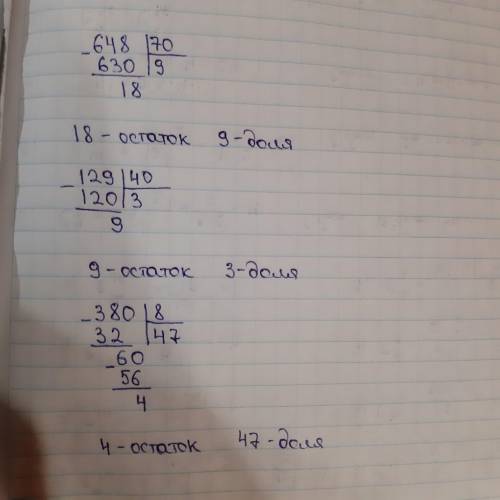 -648 | 70
630 | 9
18
18 - остаток 9 - доля
-129 | 40
120 | 3
9
9 - остаток 3 - доля
-380 | 8
32 | 47
-60
56
4
4 - остаток 47 - доля